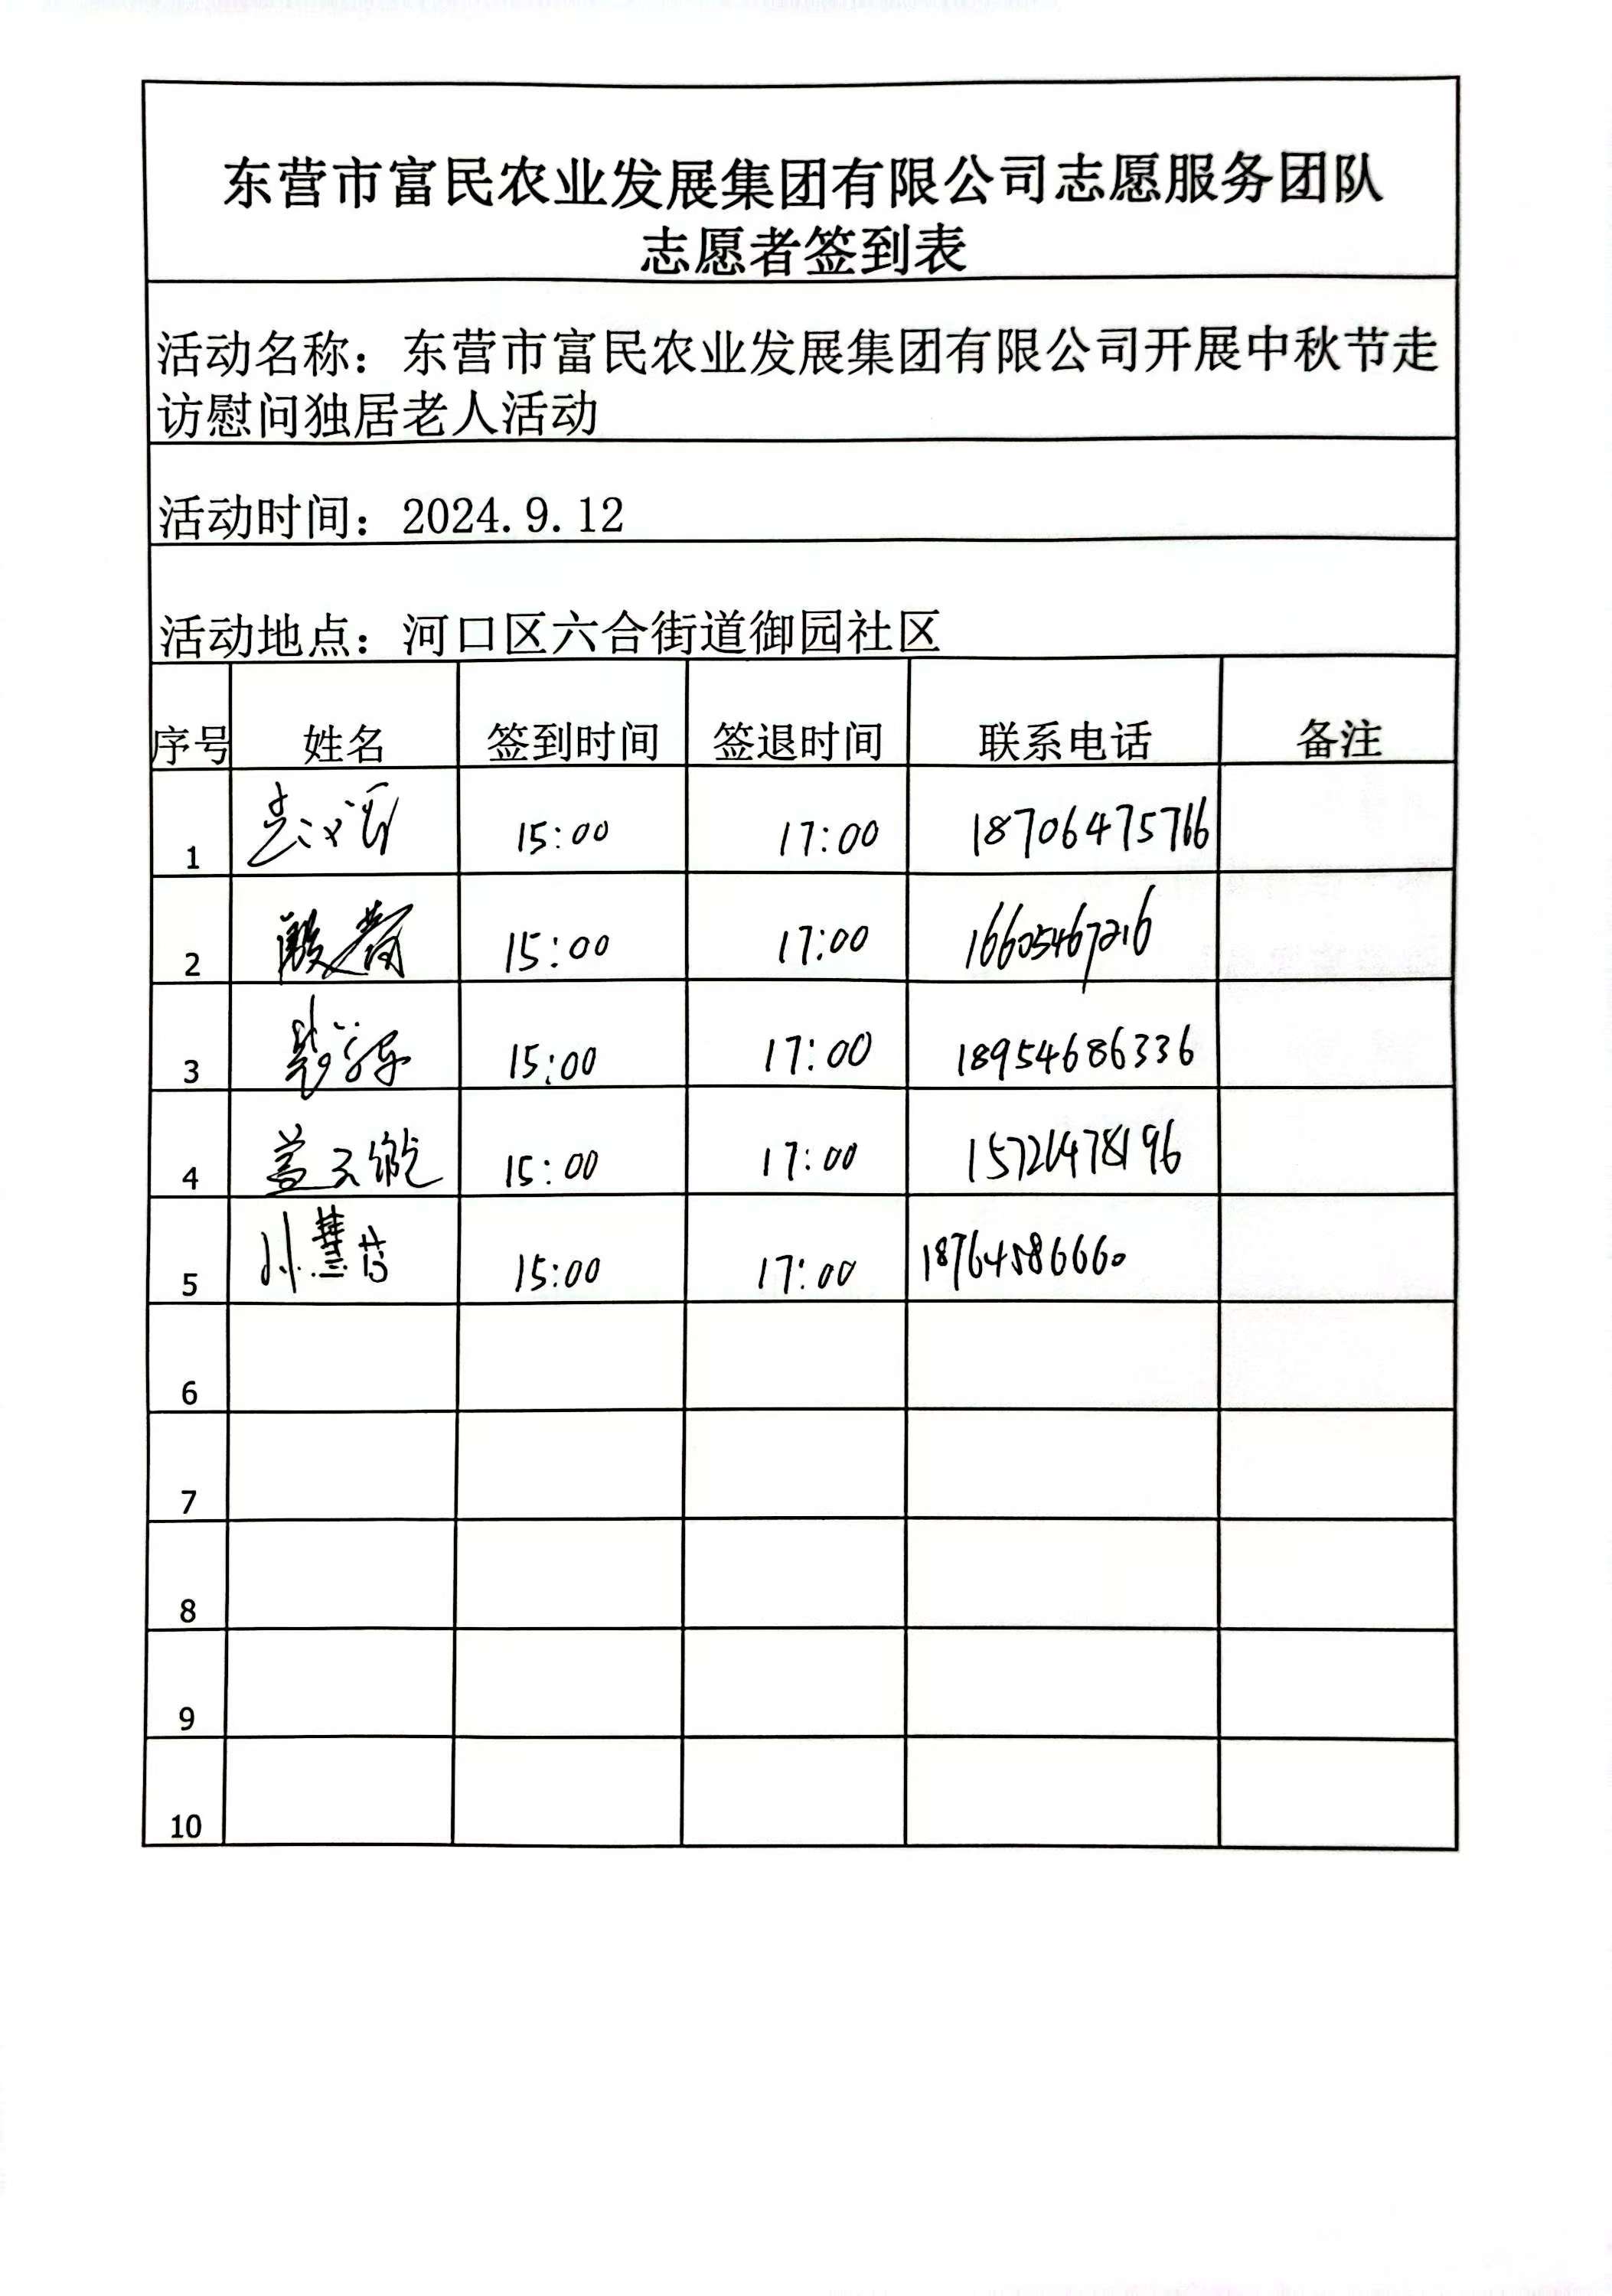 东营市富民农业发展集团有限公司志愿服务团队
志愿者签到表
活动名称：东营市富民农业发展集团有限公司开展中秋节走
访慰问独居老人活动
活动时间：2024.9.12
活动地点：河口区六合街道御园社区
序号 姓名 签到时间 签退时间 联系电话 备注
1 15:00 17:00 18706475766
2 15:00 17:00 16605467216
3 15:00 17:00 18954686336
4 盖 15:00 17:00 15726478196
5 孙慧 15:00 17:00 18764586660
6
7
8
9
10